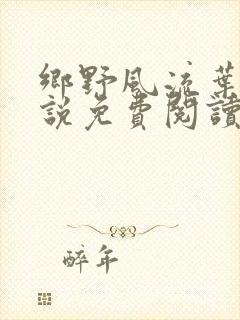 鄉野風流葉
說免費閱讀
醉年